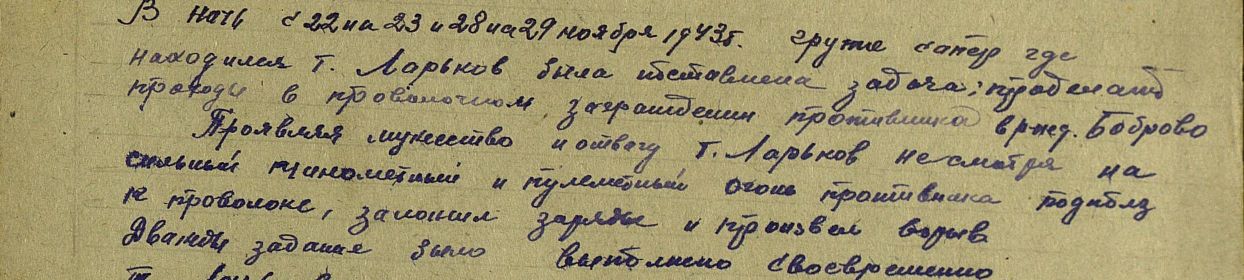 В ночь с 22 на 23 и 28 на 29 ноября 1943г. группе сапер где
находился т. Ларьков была поставлена задача: проделать
проходы в проволочном заграждении противника в р-не д. Боброво
Проявляя мужество и отвагу т. Ларьков несмотря на
сильный минометный и пулеметный огонь противника подполз
к проволоке, заложил заряды и произвел взрыв
Дважды задание было выполнено своевременно